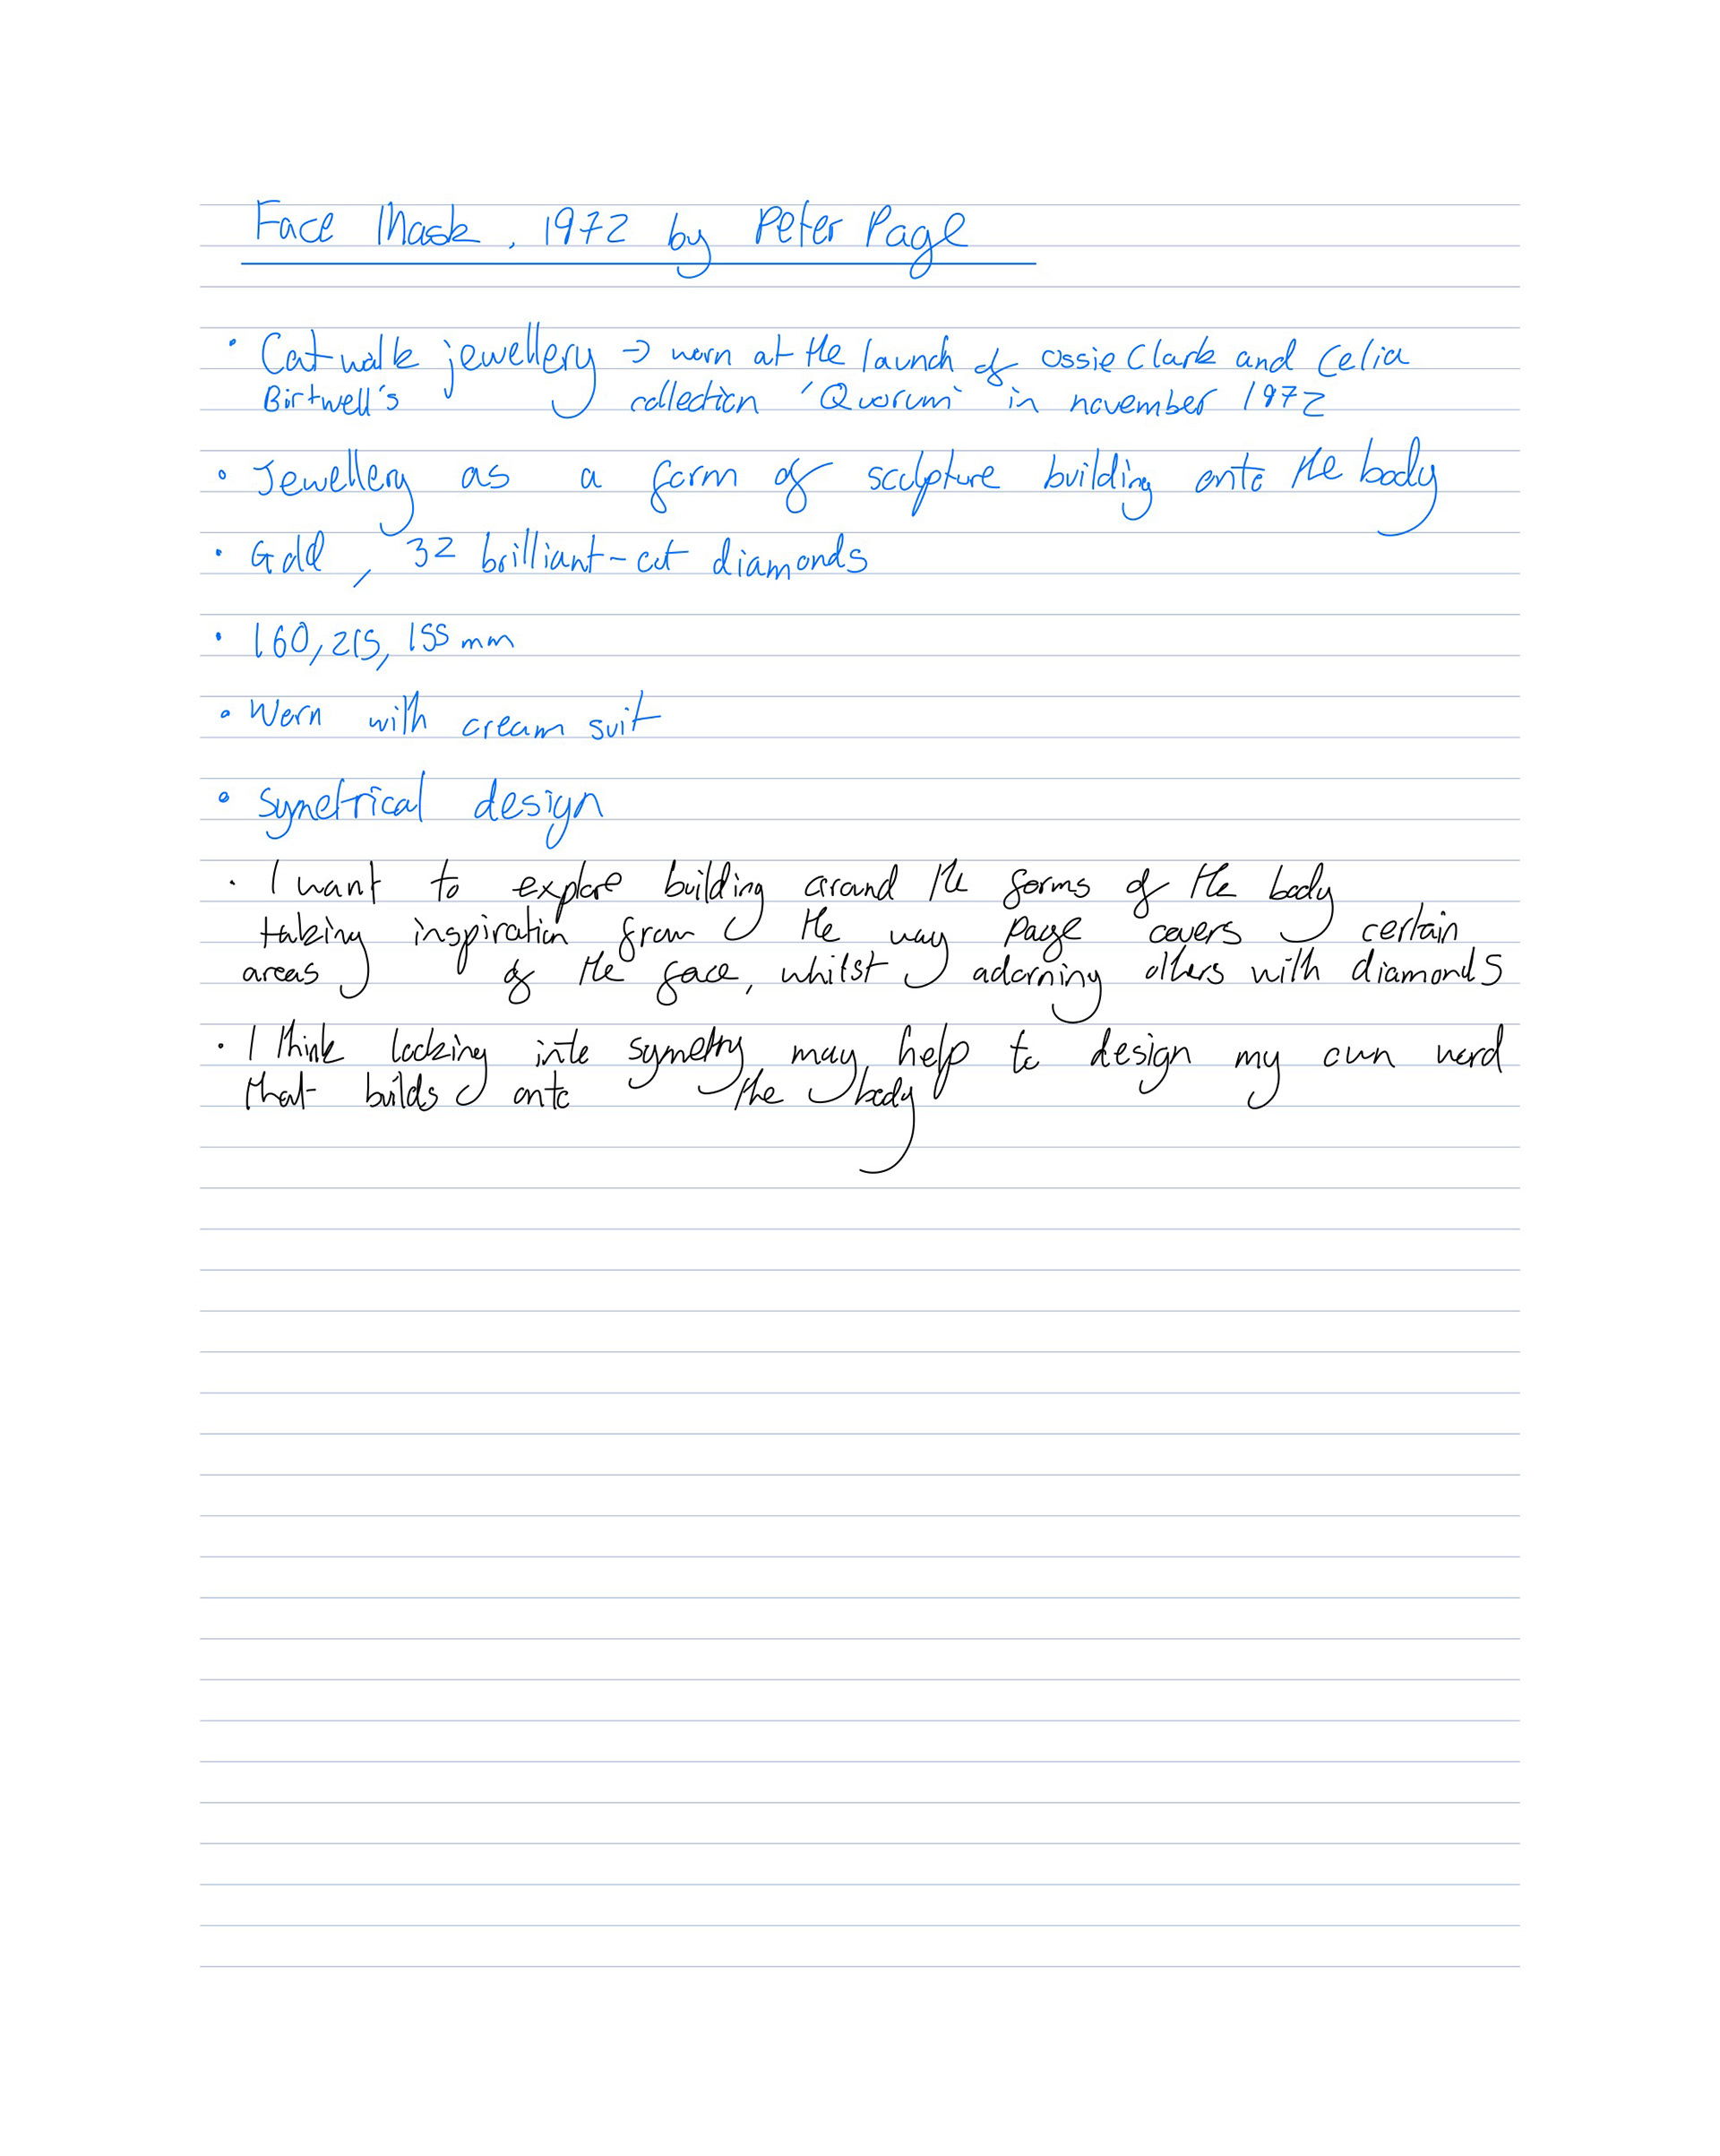 Face Mask, 1972 by Peter Page
• Catwalk jewellery → worn at the launch of Ossie Clark and Celia
Birtwell's collection 'Quorum' in november 1972
• Jewellery as a form of sculpture building onto the body
• Gold, 32 brilliant-cut diamonds
• 160, 215, 155 mm
• Worn with cream suit
• Symetrical design
• I want to explore building around the forms of the body
taking inspiration from the way Page covers certain
areas of the face, whilst adorning others with diamonds
• I think looking into symetry may help to design my own
that builds onto the body